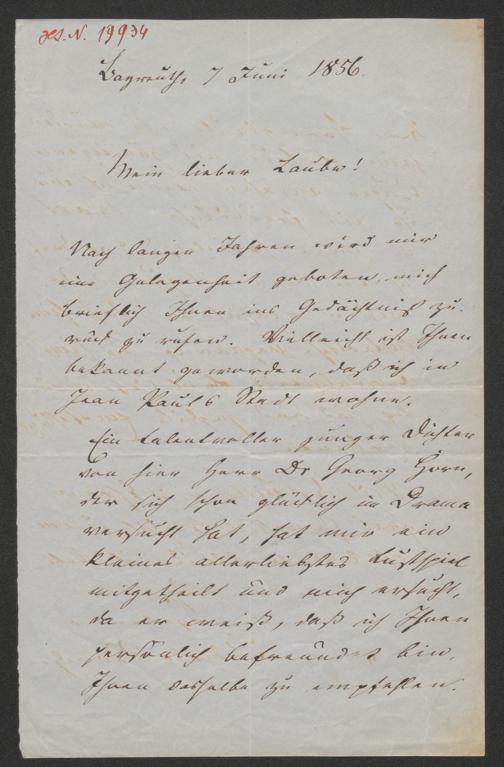 H.I.N. 19934
Bayreuth, 7 Juni 1856.
Mein lieber Laube!
Nach langen Jahren wird mir
eine Gelegenheit geboten, mich
brieflich Ihnen ins Gedächtniß zu-
rück zu rufen. Vielleicht ist Ihnen
bekannt geworden, daß ich in
Jean Pauls Stadt wohne.
Ein talentvoller junger Dichter
von hier Herr Dr Georg Horn,
der sich schon glücklich im Drama
versucht hat, hat mir ein
kleines allerliebstes Lustspiel
mitgetheilt und mich ersucht,
da er weiß, daß ich Ihnen
persönlich befreundet bin,
Ihnen dasselbe zu empfehlen.